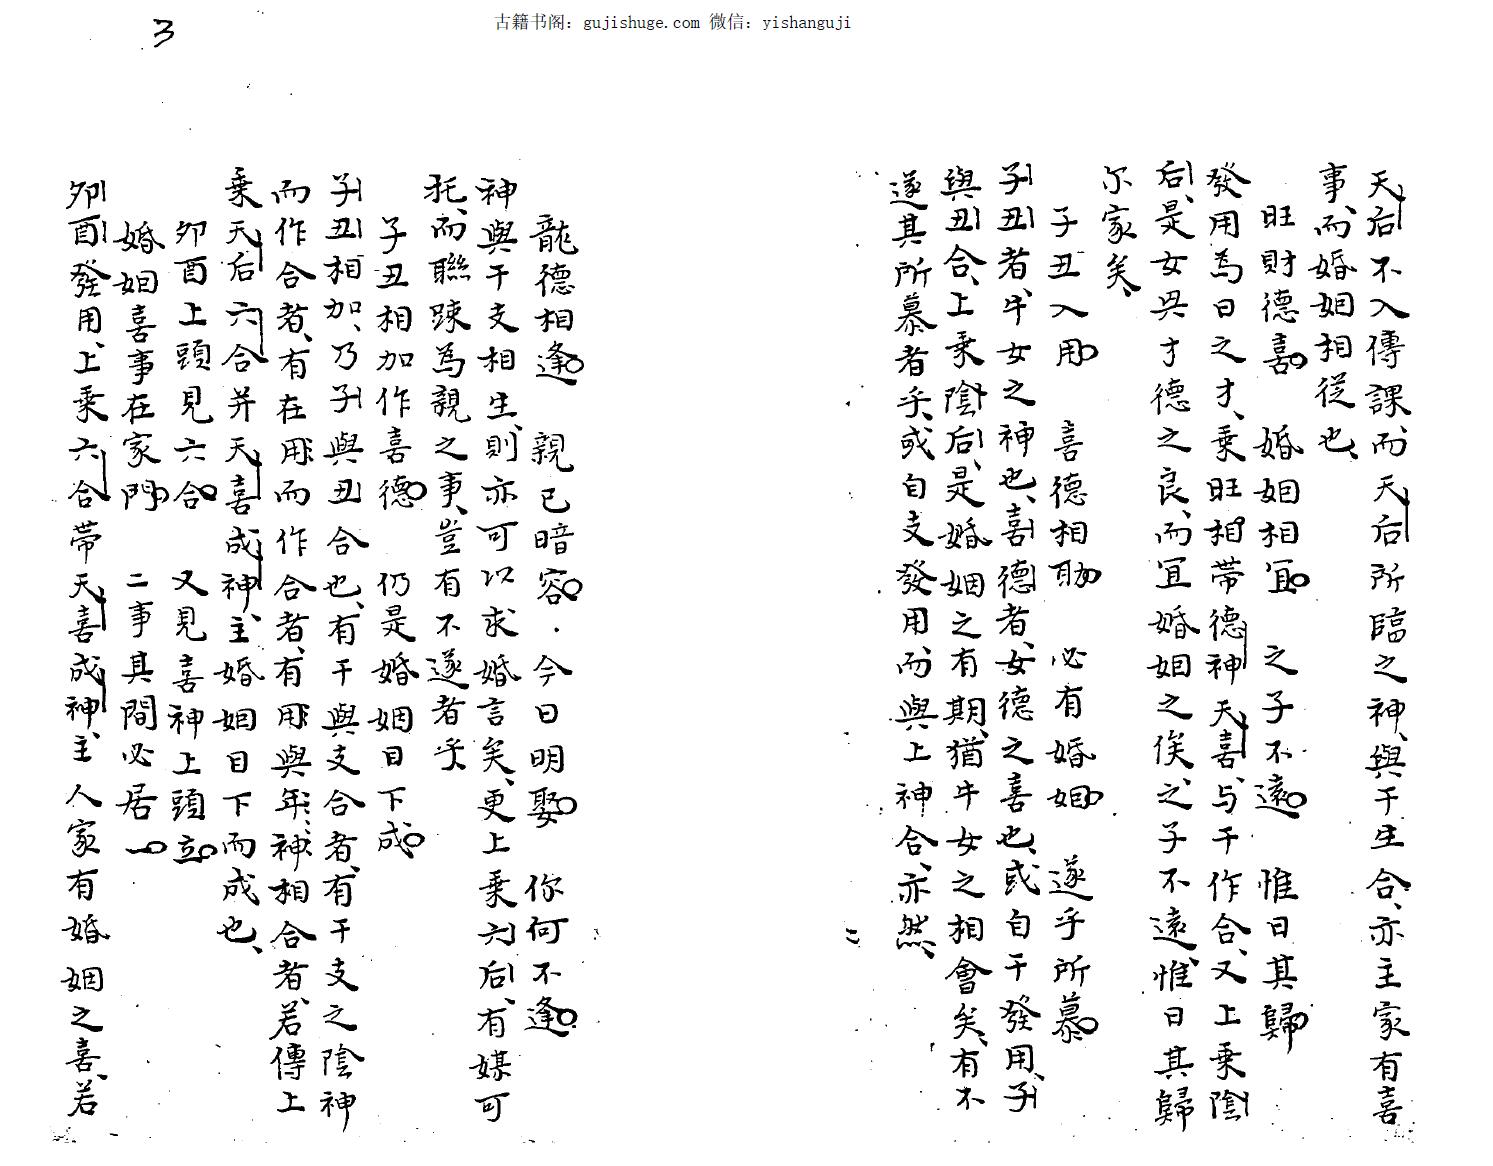 古籍书阁：gujishuge.com 微信：yishanguji
3
天后不入傳課、而天后所臨之神、與干生合、亦主家有喜
事、而婚姻相從也、
旺財德喜。婚姻相宜。之子不遠。惟日其歸。
發用為日之才、乘旺相帶德神天喜、与干作合、又上乘陰
后、是女與才德之良、而宜婚姻之俟、之子不遠、惟日其歸
尔家矣、
子丑入用。喜德相助。必有婚姻。遂乎所慕。
子丑者、牛女之神也、喜德者、女德之喜也、或自干發用、子
與丑合、上乘陰后、是婚姻之有期、猶牛女之相會矣、有不
遂其所慕者乎、或自支發用、而與上神合、亦然、
龍德相逢。親已暗容。今日明娶。你何不逢。
神與干支相生、則亦可以求婚言矣、更上乘六后、有媒可
托、而聯踈為親之事、豈有不遂者乎、
子丑相加作喜德。仍是婚姻目下成。
子丑相加、乃子與丑合也、有干與支合者、有干支之陰神
而作合者、有在用而作合者、有用與年神相合者、若傳上
乘天后六合并天喜成神、主婚姻目下而成也、
卯酉上頭見六合。又見喜神上頭立。
婚姻喜事在家門。二事其間必居一。
卯酉發用、上乘六合帶天喜成神、主人家有婚姻之喜、若